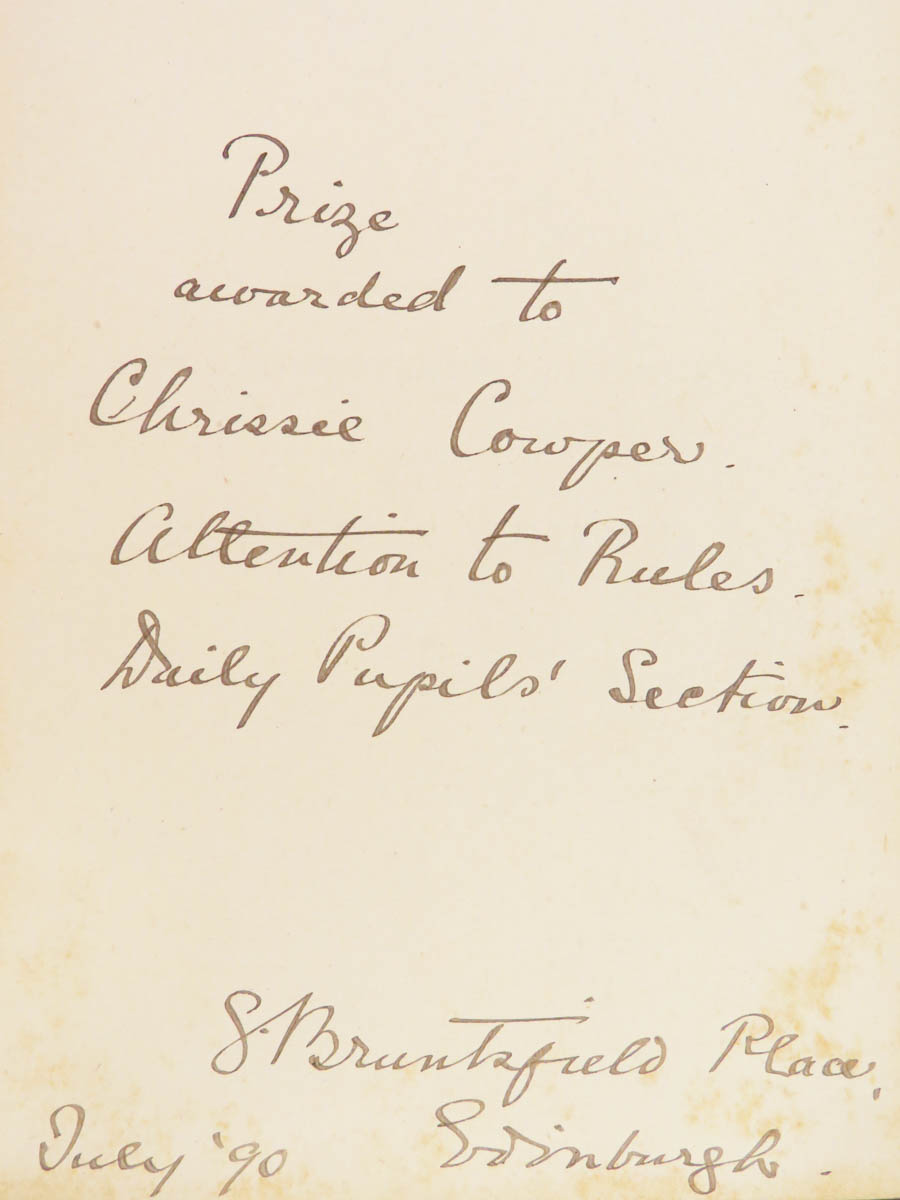 Prize
awarded to
Chrissie Cowper.
Attention to Rules.
Daily Pupils' Section.
8. Bruntsfield Place,
July '90 Edinburgh.